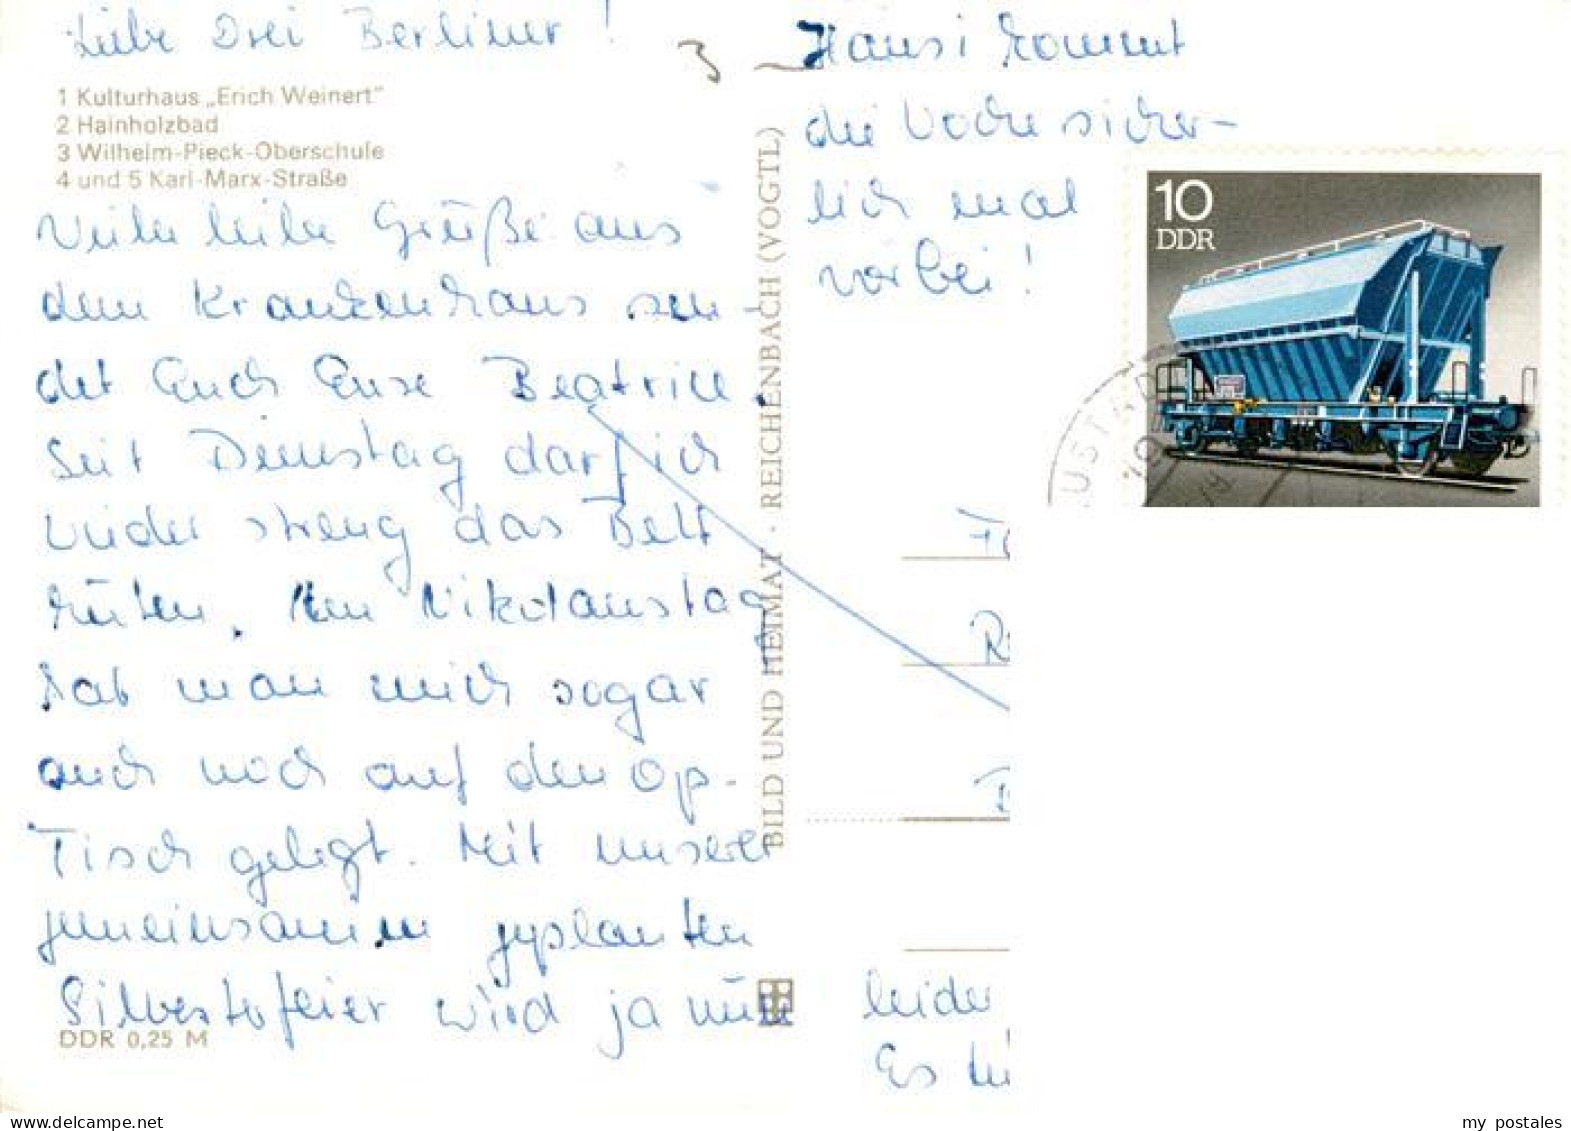 Liebe Drei Berliner!
1 Kulturhaus „Erich Weinert"
2 Hainholzbad
3 Wilhelm-Pieck-Oberschule
4 und 5 Karl-Marx-Straße
Viele liebe Grüße aus
dem Krankenhaus sen-
det Euch Eure Beatrice.
Seit Dienstag darf ich
wieder streng das Bett
hüten. Am Nikolaustag
hat man mich sogar
auch noch auf den Op-
Tisch gelegt. Mit unserer
gemeinsamen geplanten
Silvesterfeier wird ja nun
DDR 0,25 M
BILD UND HEIMAT · REICHENBACH (VOGTL)
3
Hansi kommt
die Woche sicher-
lich mal
vorbei!
10
DDR
leider
Es
my postales